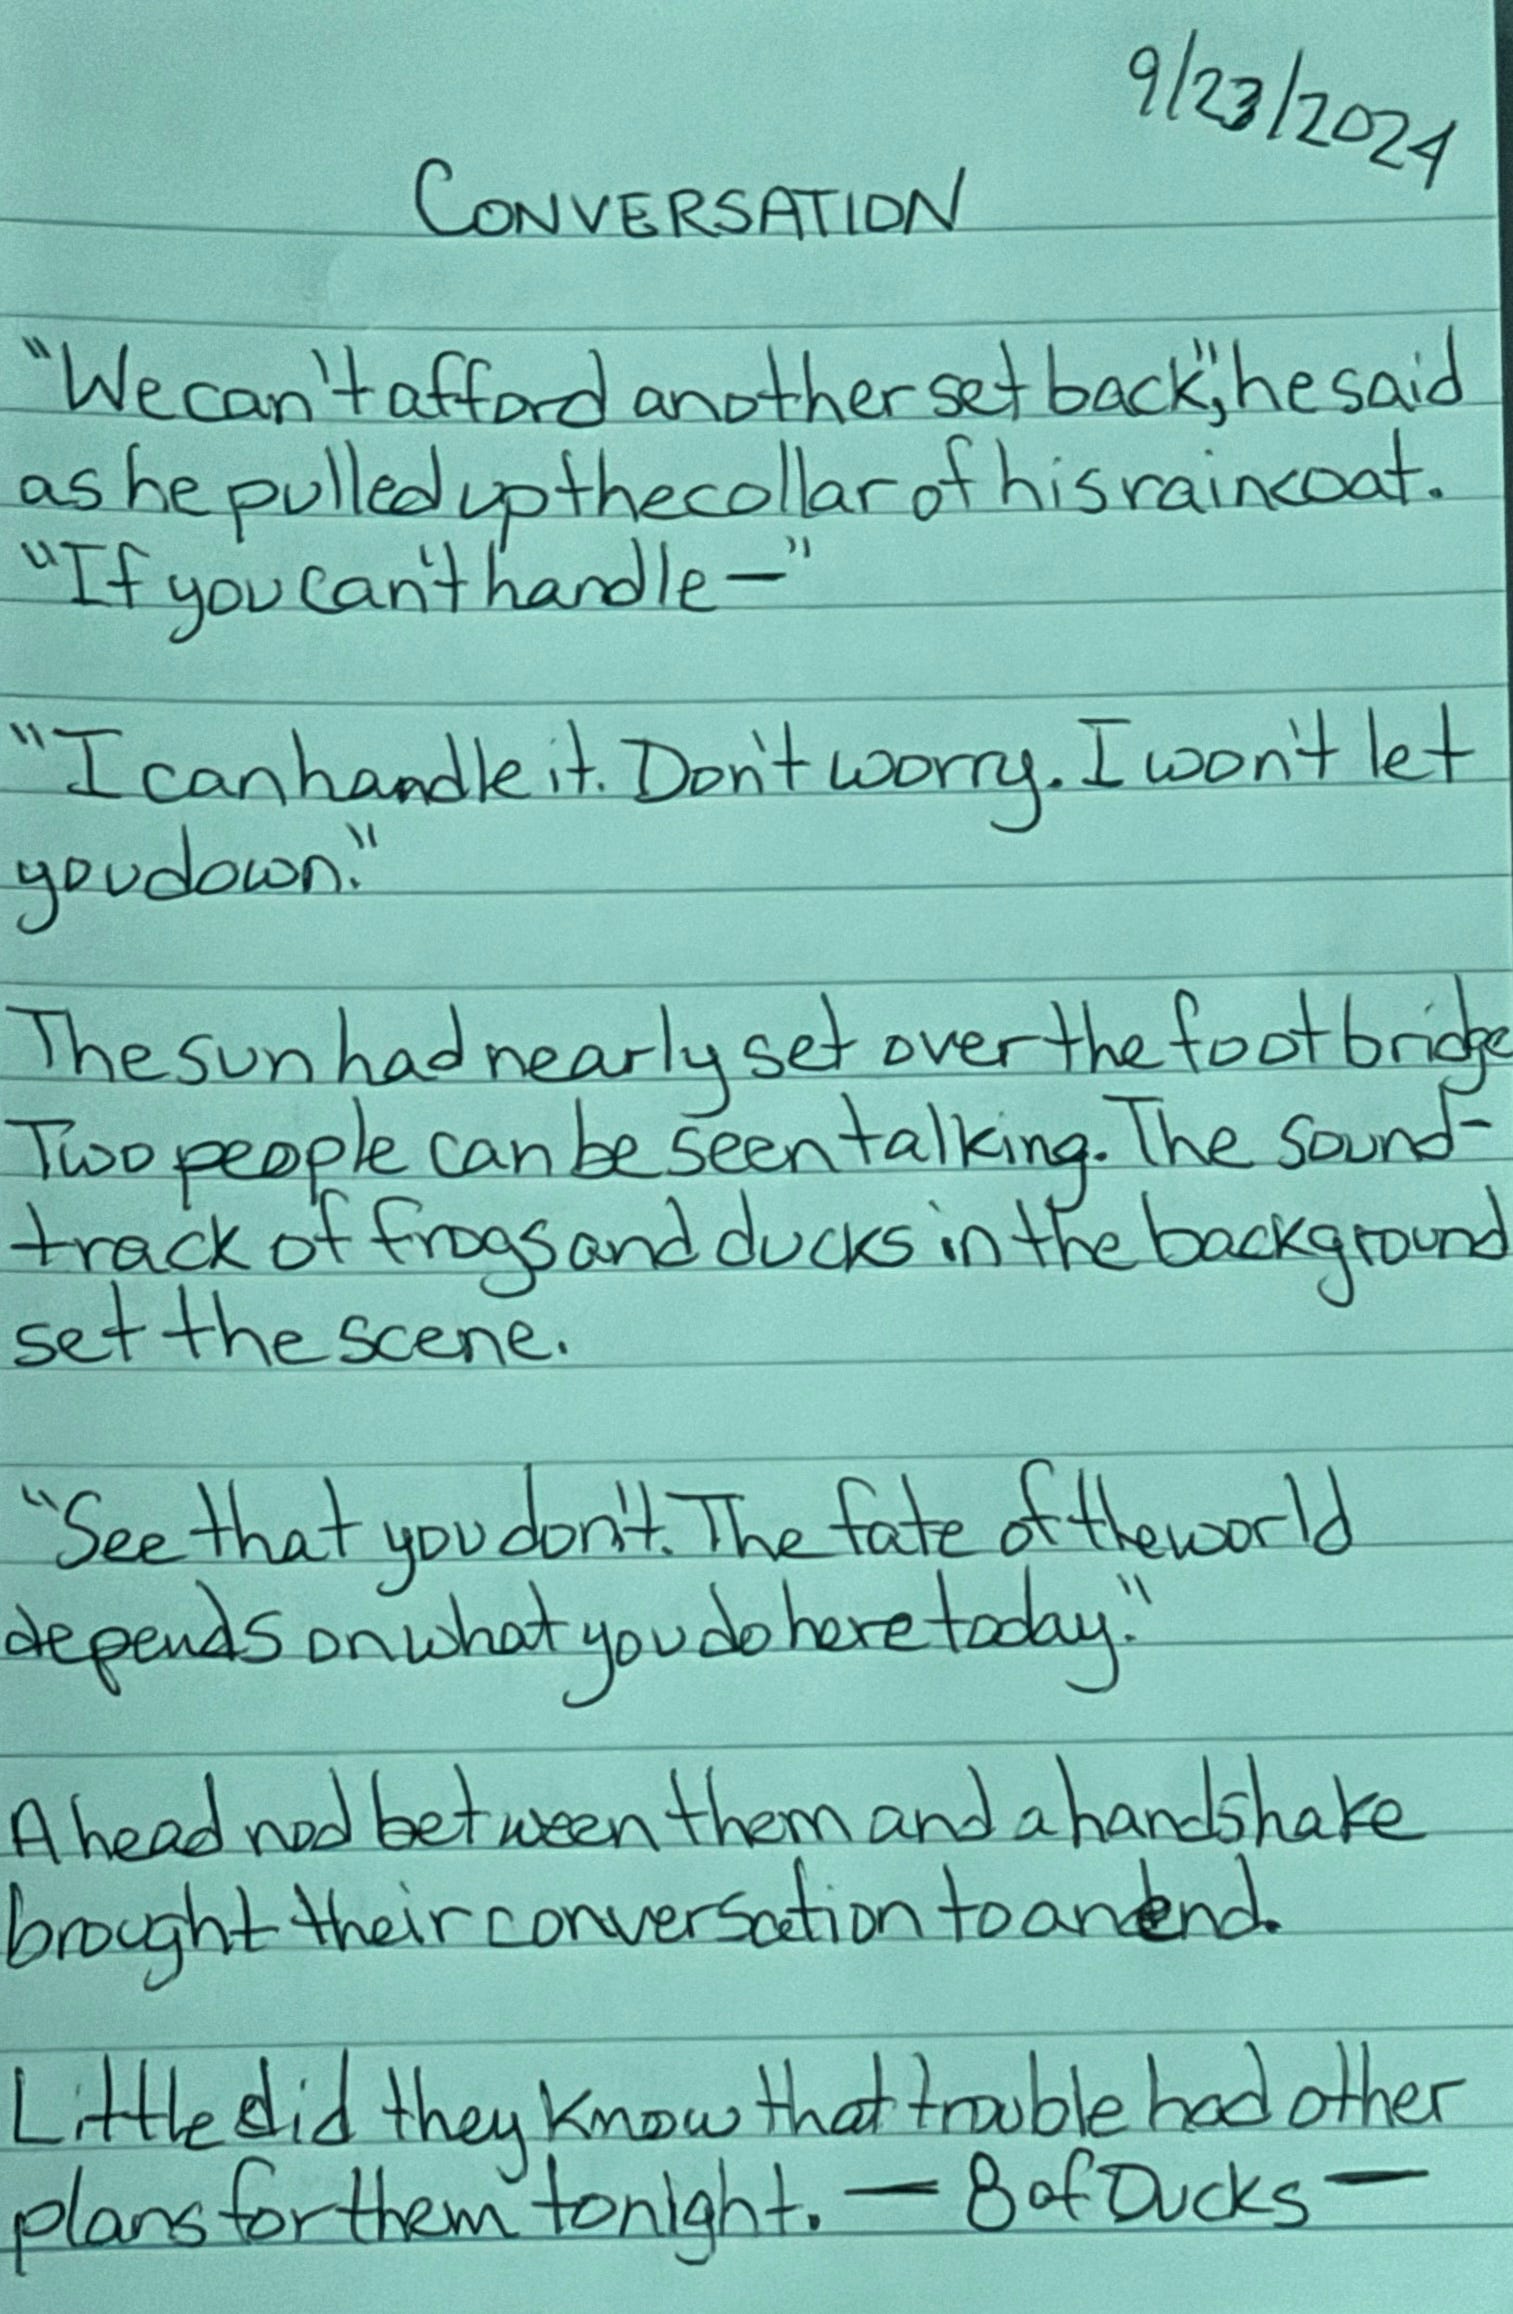 9/23/2024
CONVERSATION
"We can't afford another set back," he said
as he pulled up the collar of his raincoat.
"If you can't handle —"
"I can handle it. Don't worry. I won't let
you down."
The sun had nearly set over the foot bridge
Two people can be seen talking. The sound-
track of frogs and ducks in the background
set the scene.
"See that you don't. The fate of the world
depends on what you do here today."
A head nod between them and a handshake
brought their conversation to an end.
Little did they know that trouble had other
plans for them tonight. — 8 of Ducks —